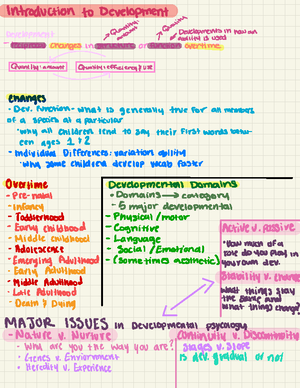 Introduction to Development
Quantity: amount
Quality
Developments in how an
ability is used
Development
- Changes in structure or function overtime.
Quantity: amount
Quality: efficiency & use
Changes
- Dev. Function- what is generally true for all members
of a species at a particular
- why all children tend to say their first words betw-
een ages 1 & 2
- Individual Differences: variation ability
- why some children develop vocab faster
Overtime
- Pre-natal
- Infancy
- Toddlerhood
- Early childhood
- Middle childhood
- Adolescence
- Emerging Adulthood
- Early Adulthood
- Middle Adulthood
- Late Adulthood
- Death & Dying
Developmental Domains
- Domains → category
- 5 major developmental
- Physical / motor
- Cognitive
- Language
- Social / Emotional
- (sometimes aesthetic)
Active v. Passive
• How much of a
role do you play in
your own dev.
Stability v. Change
what things stay
the same and
what things change?
MAJOR ISSUES in Developmental psychology
- Nature v. Nurture
- Why are you the way you are?
• Genes v. Environment
• Heredity v. Experience
Continuity v. Discontinuity
Stages v. Slope
is dev. gradual or not